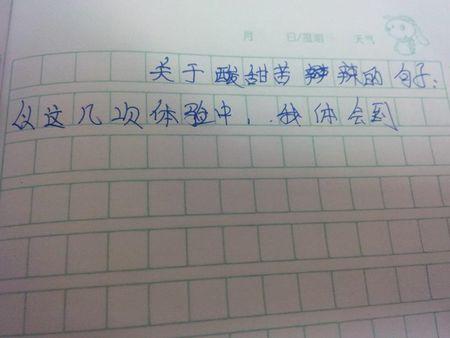 月 日/星期 天气
关于酸甜苦辣的句子:
从这几次体验中,我体会到